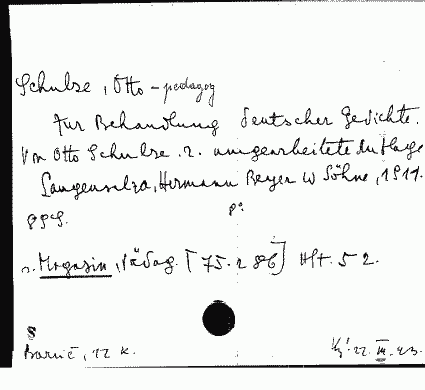 Schulze, Otto - pedagog
Zur Behandlung deutscher Gedichte.
Von Otto Schulze. 2. umgearbeitete Auflage
Langensalza, Hermann Beyer u Söhne, 1911.
8°
Magazin, Pädag. [75.286] Hft. 52.
8
Barić, 12 k.
22. III. 23.